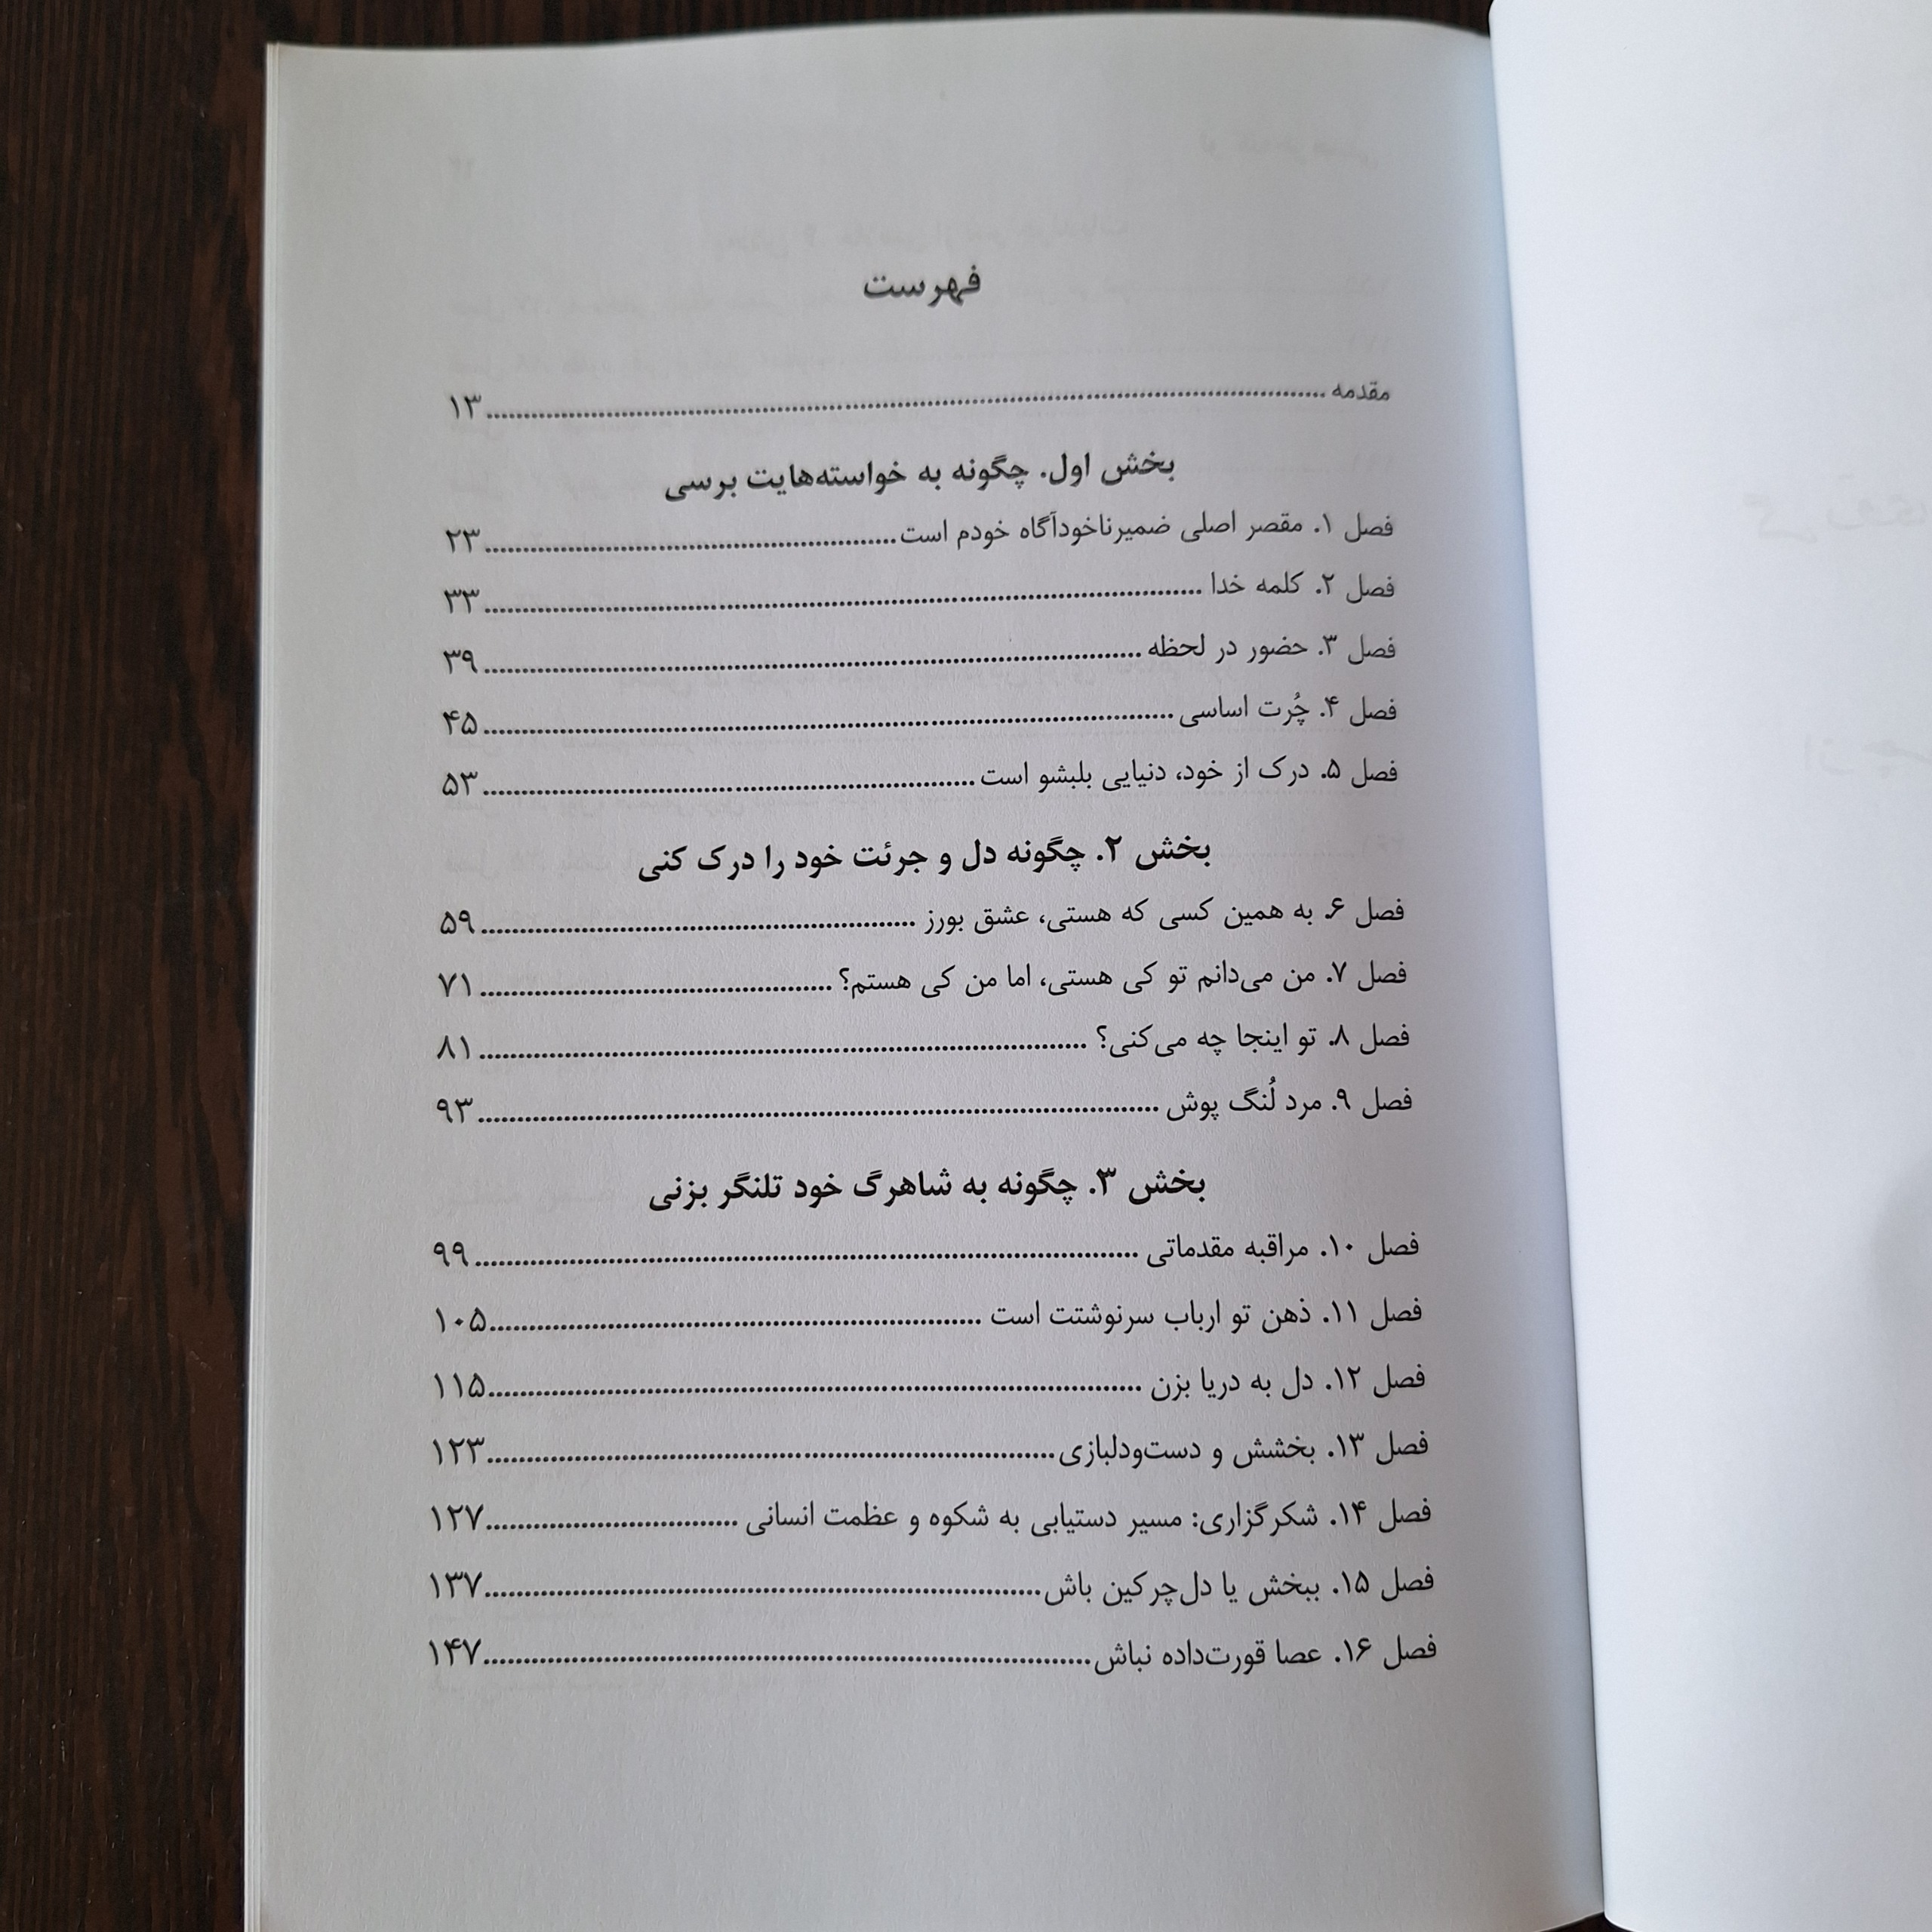 فهرست
مقدمه ........ ۱۳
بخش اول. چگونه به خواسته‌هایت برسی
فصل ۱. مقصر اصلی ضمیرناخودآگاه خودم است ........ ۲۳
فصل ۲. کلمه خدا ........ ۳۳
فصل ۳. حضور در لحظه ........ ۳۹
فصل ۴. چُرت اساسی ........ ۴۵
فصل ۵. درک از خود، دنیایی بلبشو است ........ ۵۳
بخش ۲. چگونه دل و جرئت خود را درک کنی
فصل ۶. به همین کسی که هستی، عشق بورز ........ ۵۹
فصل ۷. من می‌دانم تو کی هستی، اما من کی هستم؟ ........ ۷۱
فصل ۸. تو اینجا چه می‌کنی؟ ........ ۸۱
فصل ۹. مرد لُنگ پوش ........ ۹۳
بخش ۳. چگونه به شاهرگ خود تلنگر بزنی
فصل ۱۰. مراقبه مقدماتی ........ ۹۹
فصل ۱۱. ذهن تو ارباب سرنوشتت است ........ ۱۰۵
فصل ۱۲. دل به دریا بزن ........ ۱۱۵
فصل ۱۳. بخشش و دست‌ودلبازی ........ ۱۲۳
فصل ۱۴. شکرگزاری: مسیر دستیابی به شکوه و عظمت انسانی ........ ۱۲۷
فصل ۱۵. ببخش یا دل‌چرکین باش ........ ۱۳۷
فصل ۱۶. عصا قورت‌داده نباش ........ ۱۴۷